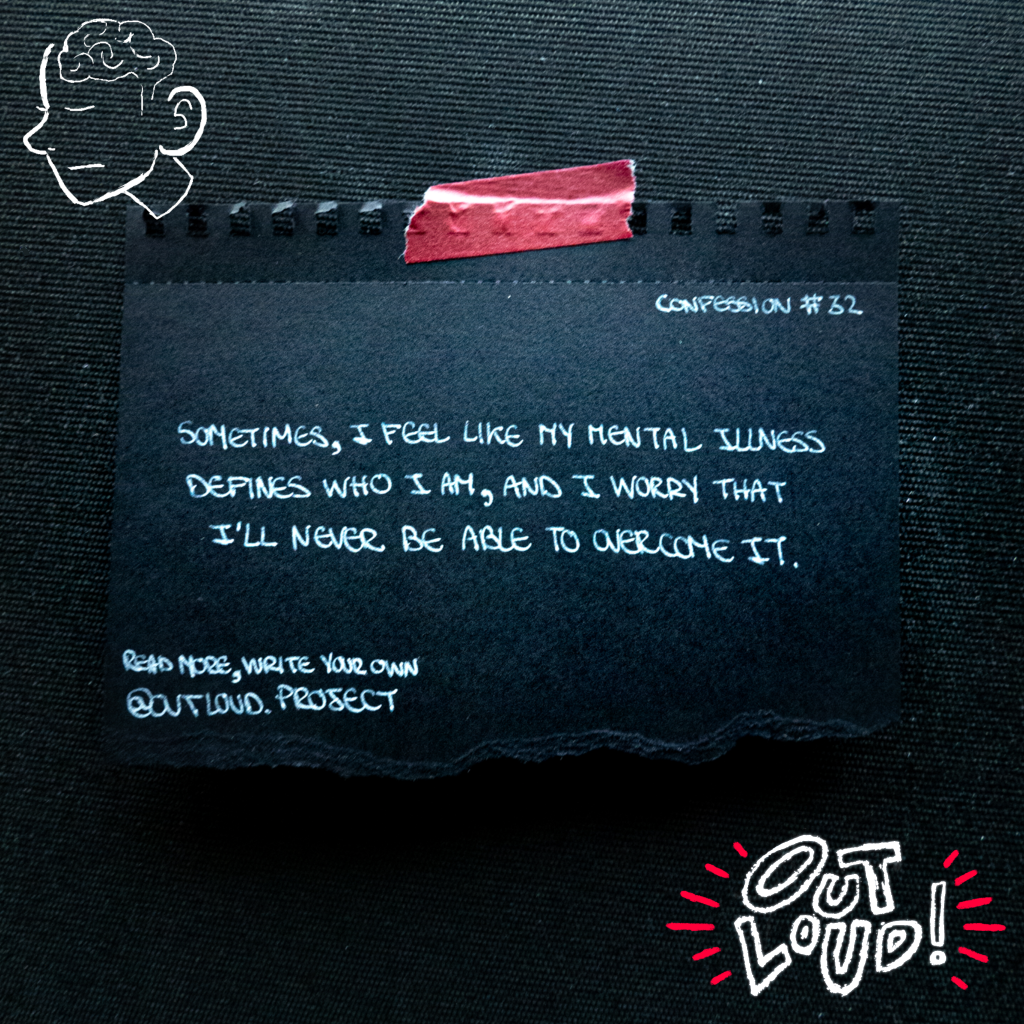 CONFESSION #32
SOMETIMES, I FEEL LIKE MY MENTAL ILLNESS
DEFINES WHO I AM, AND I WORRY THAT
I'LL NEVER BE ABLE TO OVERCOME IT.
READ MORE, WRITE YOUR OWN
@OUTLOUD.PROJECT
OUT
LOUD!